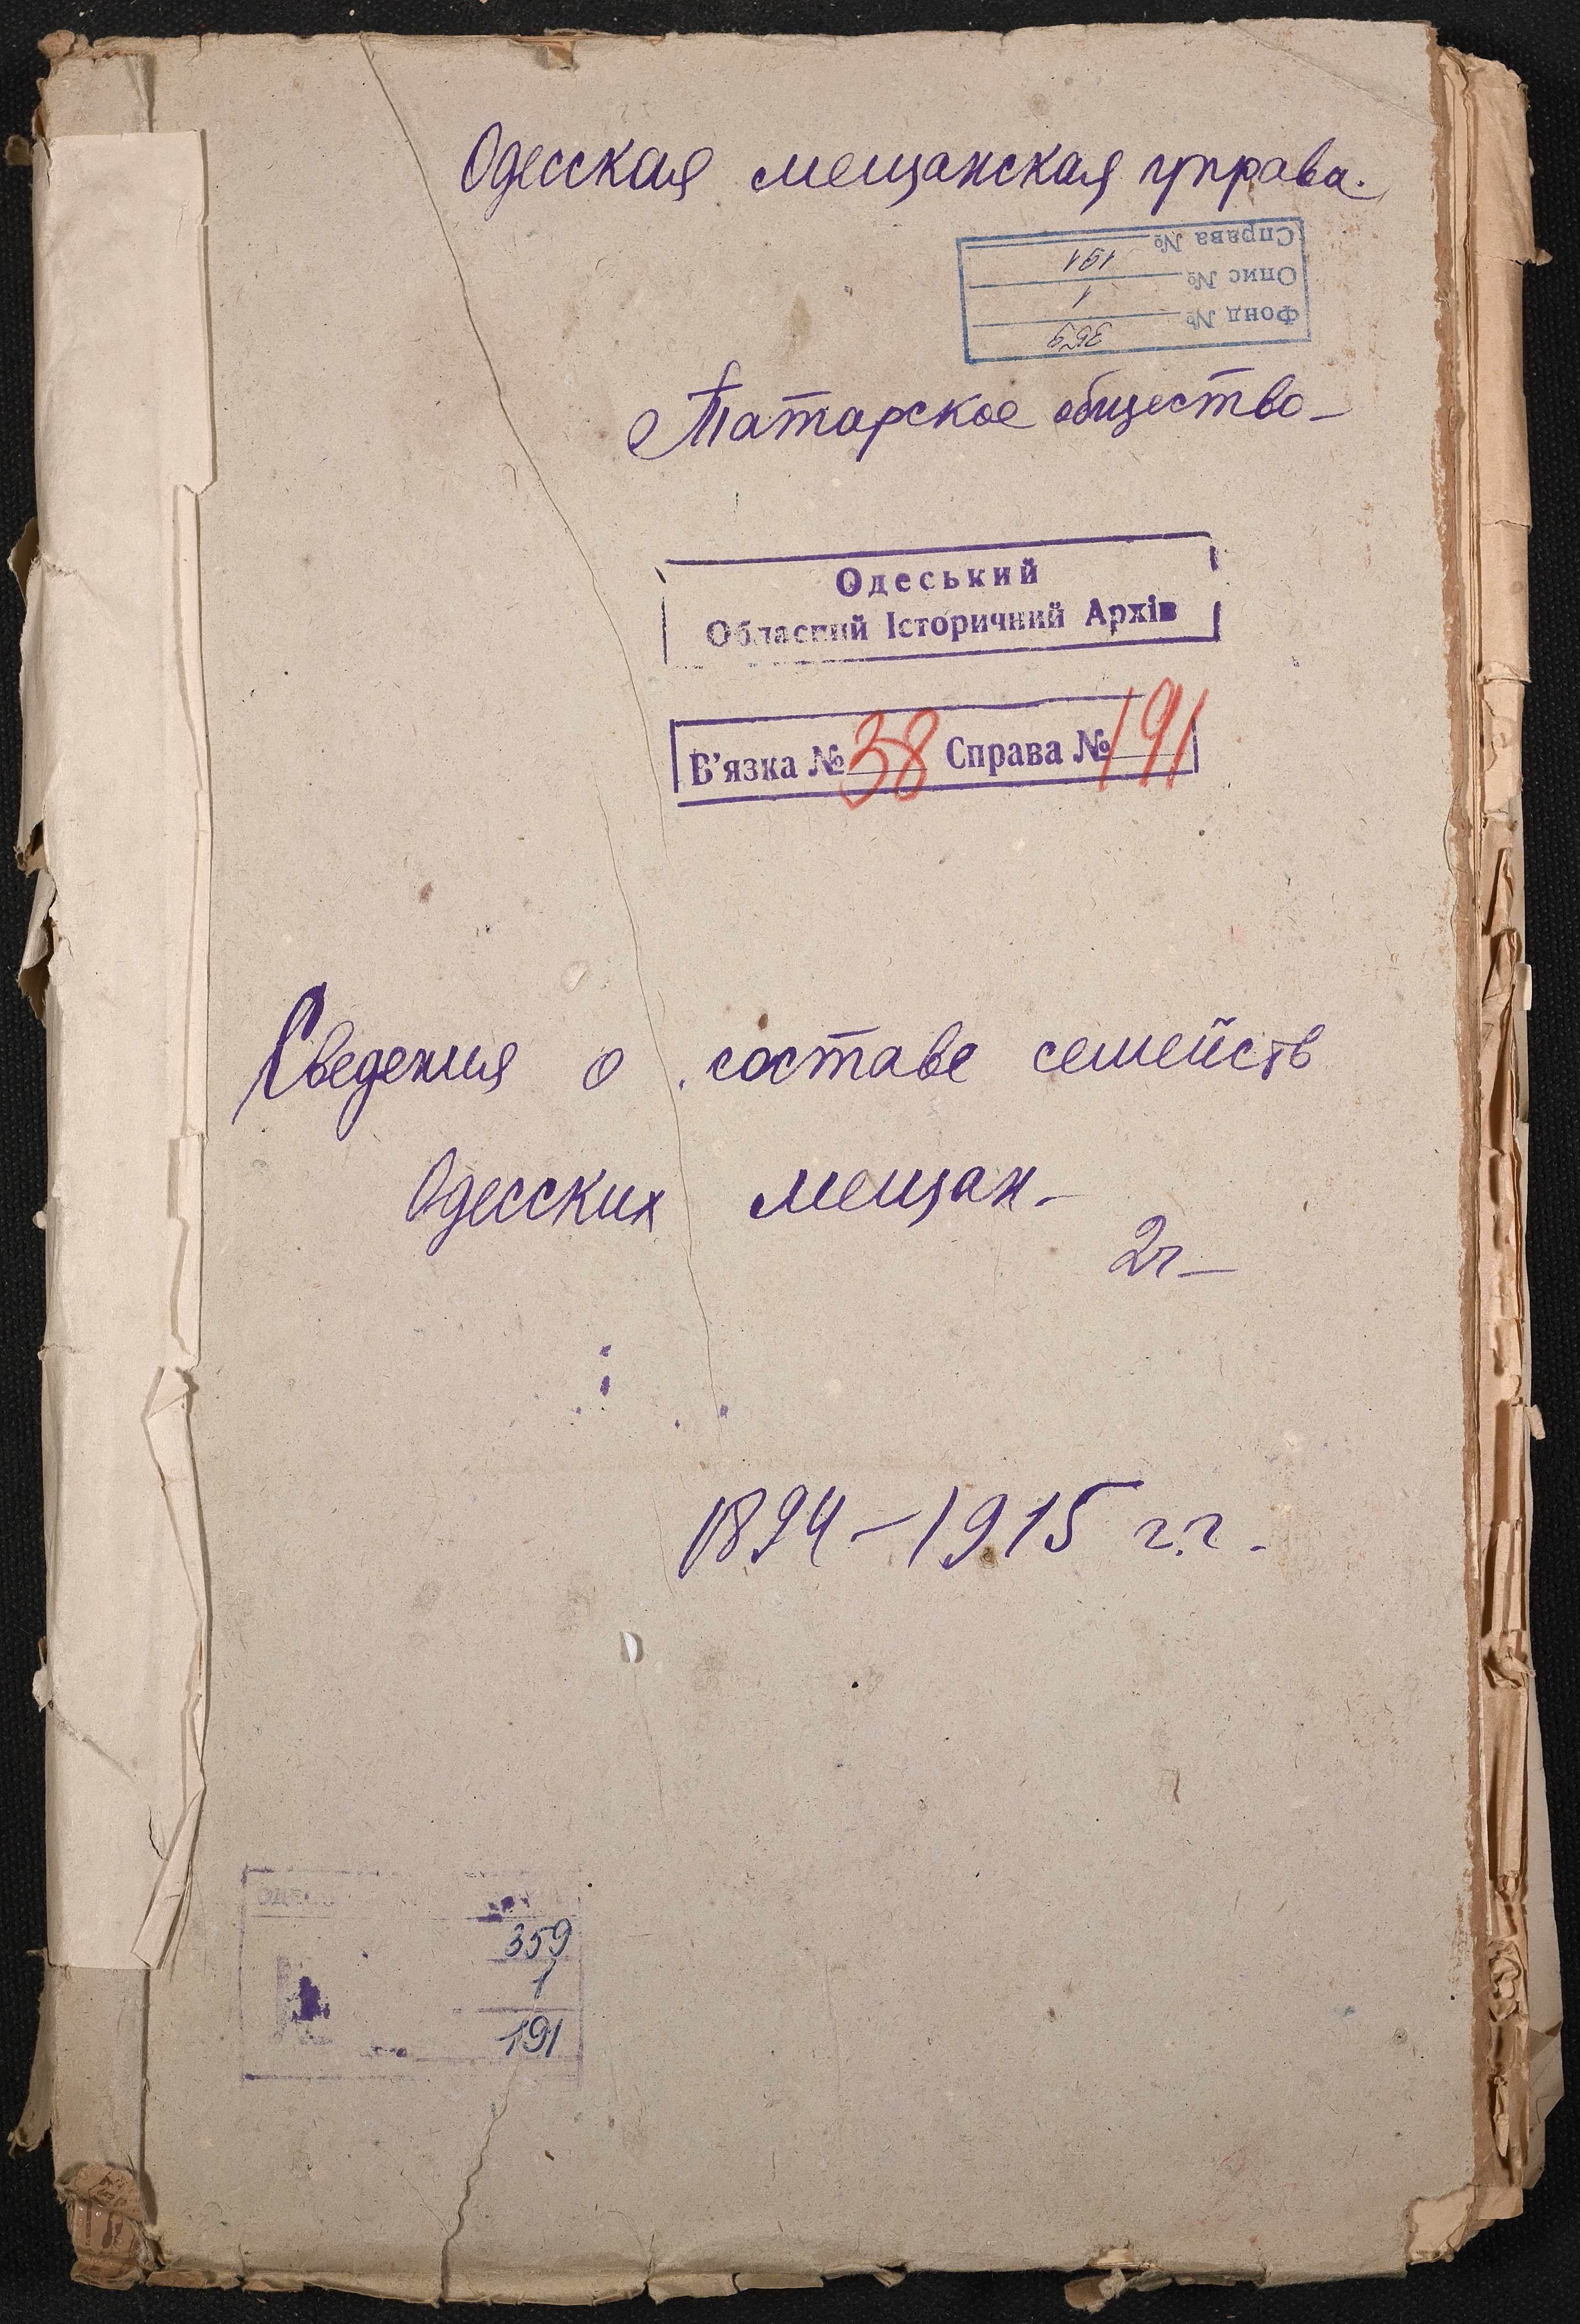 Одесская мещанская управа.
Справа № 191
Опис № 1
Фонд № 359
Татарское общество
Одеський
Обласний Історичний Архів
В'язка № 38 Справа № 191
Сведения о составе семейств
Одесских мещан.
1894 – 1915 г.г.
359
1
191